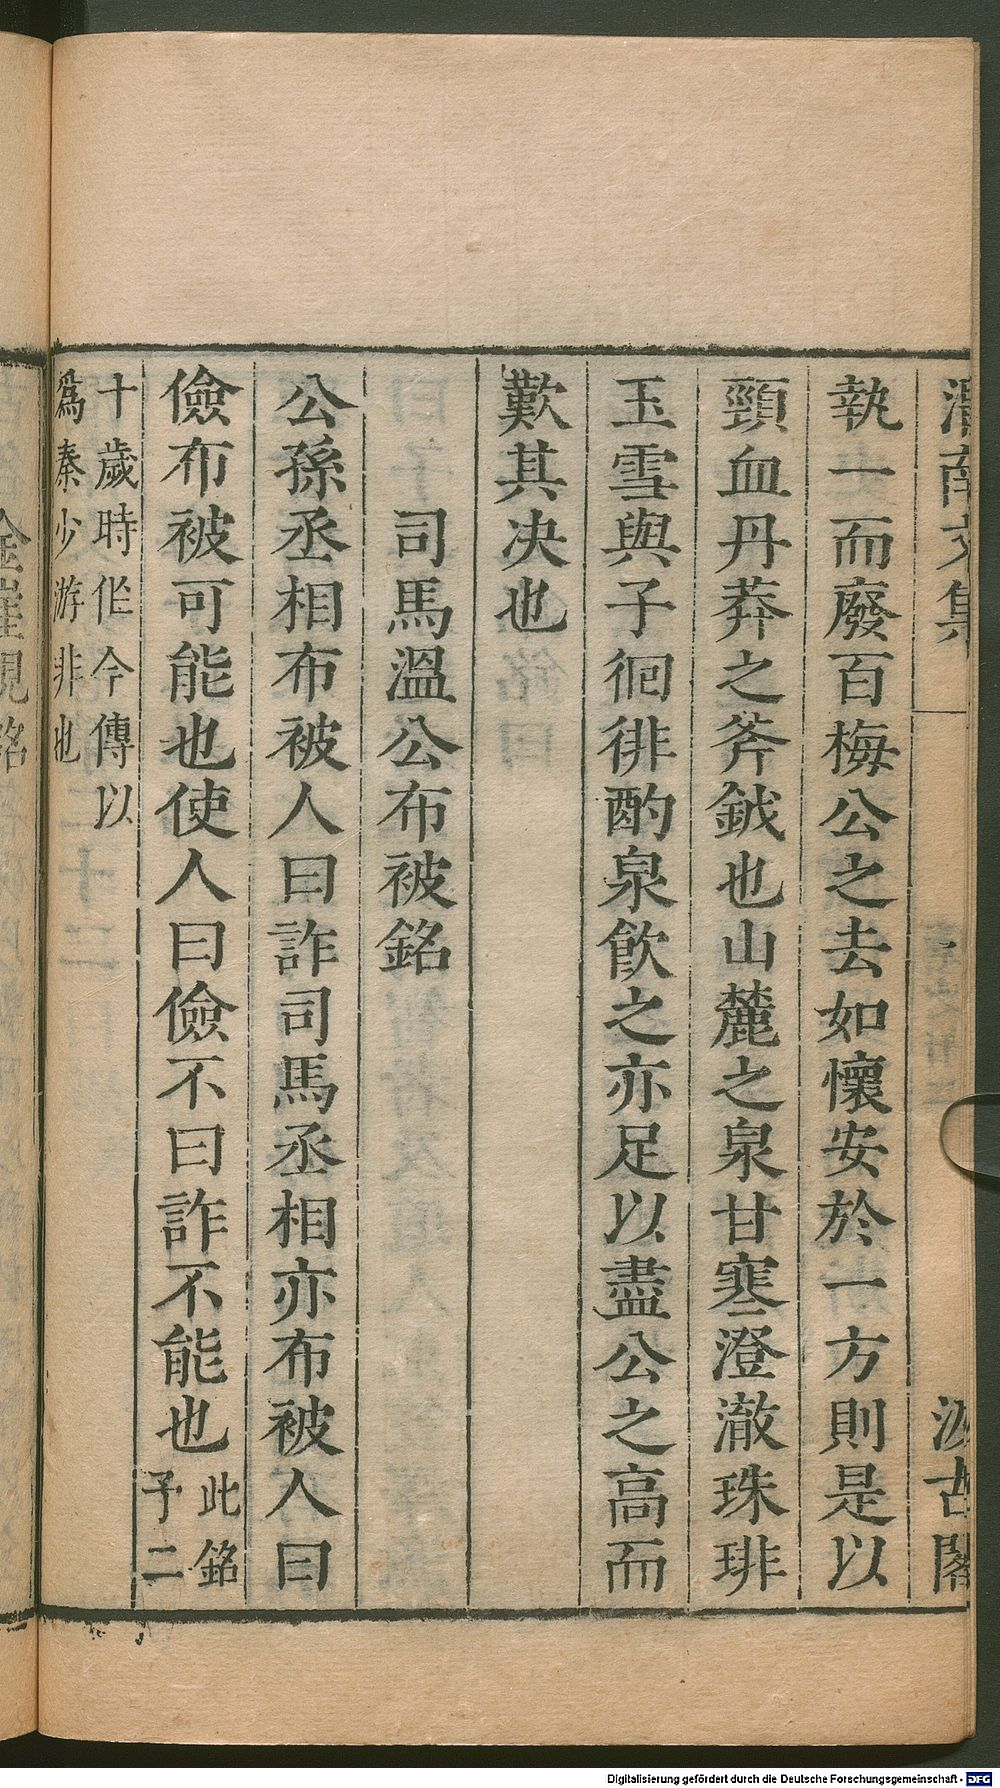 渭南文集
汲古閣
執一而廢百梅公之去如懷安於一方則是以
頸血丹莽之斧鉞也山麓之泉甘寒澄澈珠琲
玉雪與子徊徘酌泉飲之亦足以盡公之高而
歎其决也
司馬溫公布被銘
公孫丞相布被人曰詐司馬丞相亦布被人曰
儉布被可能也使人曰儉不曰詐不能也此銘
予二
十歲時作今傳以
爲秦少游非也
金崖硯銘
Digitalisierung gefördert durch die Deutsche Forschungsgemeinschaft - DFG